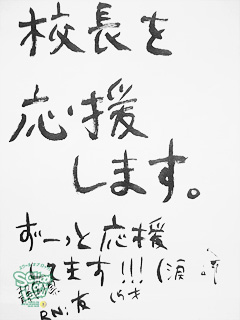 校長を
応援
します。
ずーっと応援
してます!!!(涙
RN:友